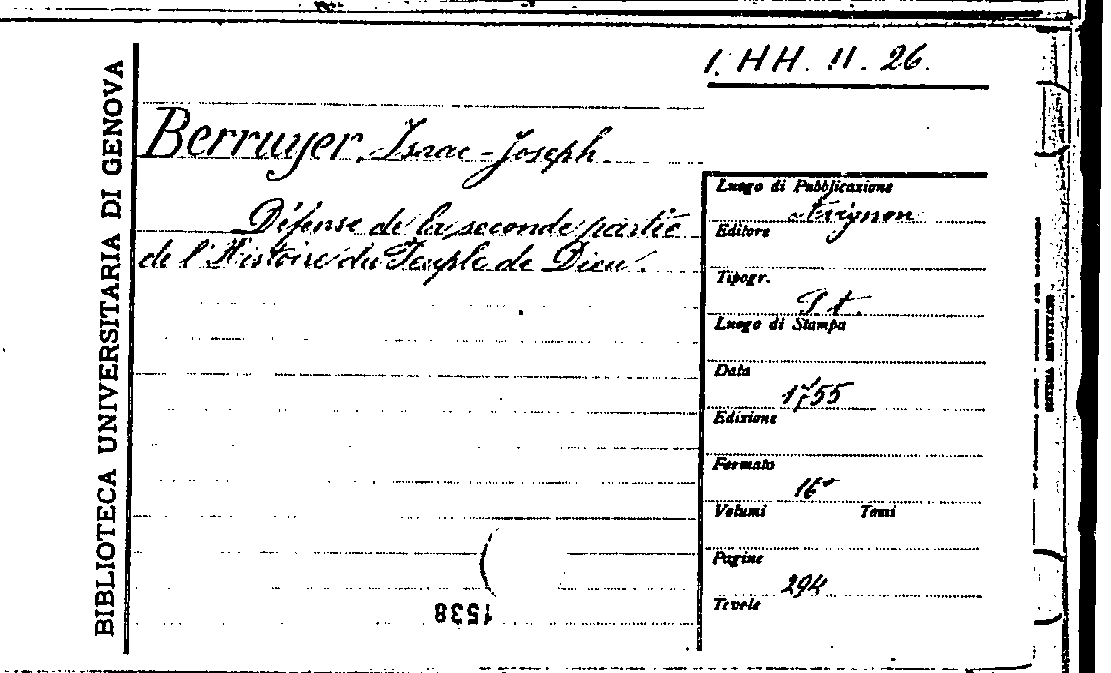 1. HH. 11. 26.
BIBLIOTECA UNIVERSITARIA DI GENOVA
Berruyer, Isaac-Joseph.
Défense de la seconde partie
de l'Histoire du Peuple de Dieu.
Luogo di Pubblicazione
Avignon
Editore
Tipogr.
Luogo di Stampa
Data
1755
Edizione
Formato
16°
Volumi Tomi
Pagine
294
Tavole
1538